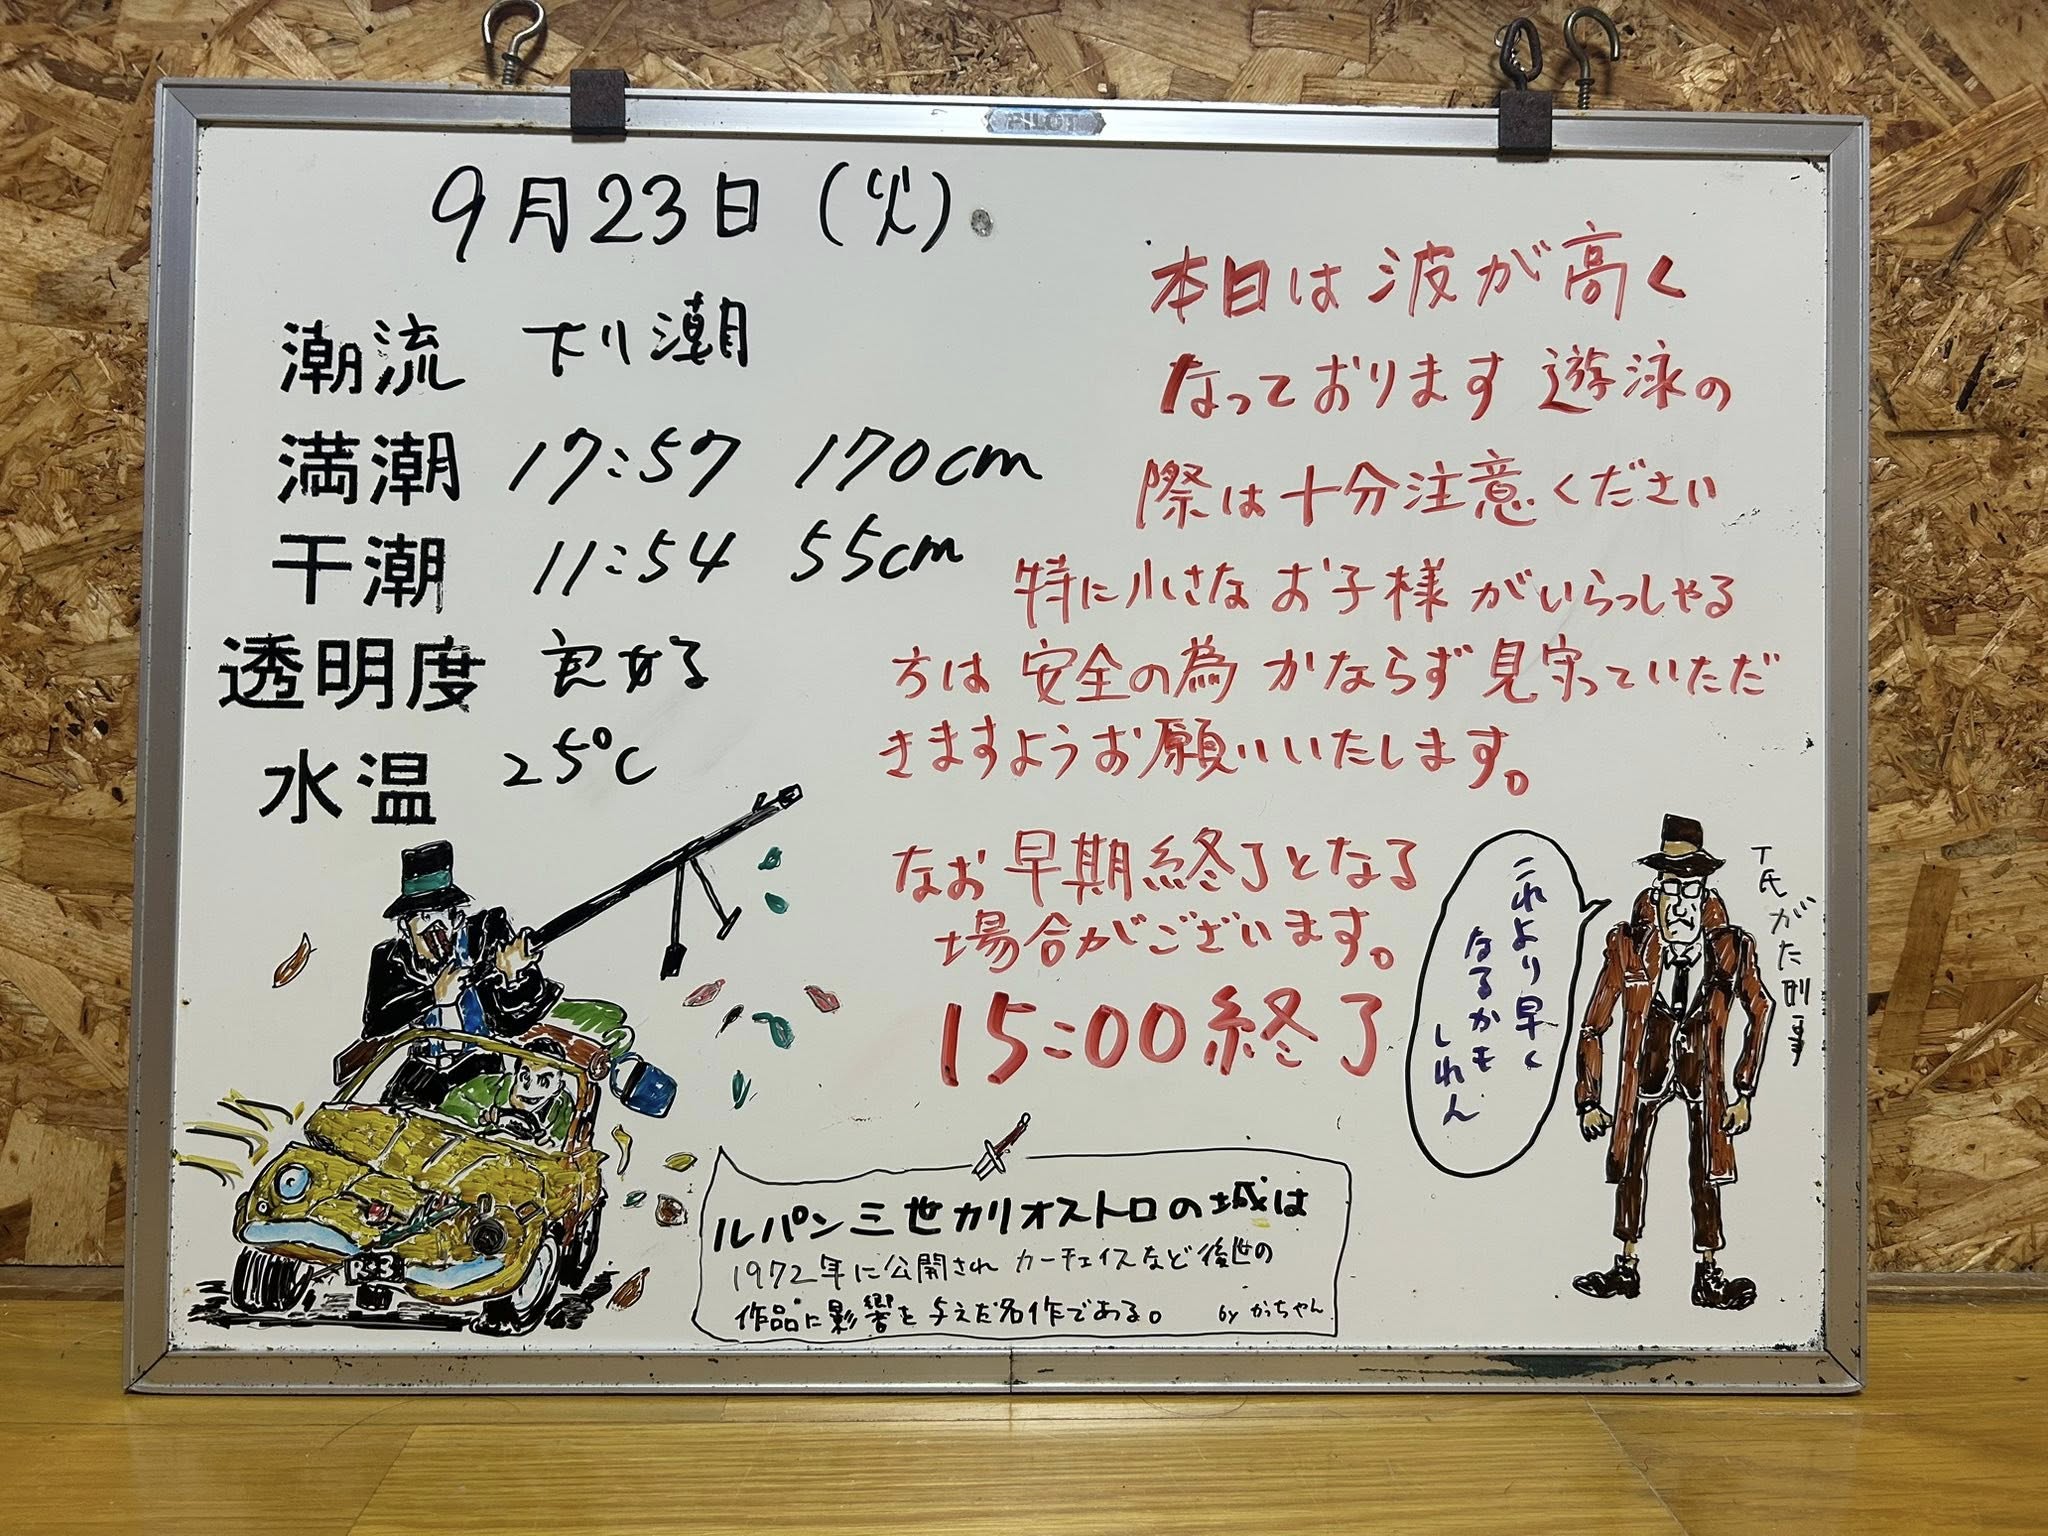 PILOT
9月23日(火)
潮流 下り潮
満潮 17:57 170cm
干潮 11:54 55cm
透明度 良好
水温 25℃
本日は波が高く
なっております 遊泳の
際は十分注意ください
特に小さなお子様がいらっしゃる
方は安全の為かならず見守っていただ
きますようお願いいたします。
なお早期終了となる
場合がございます。
15:00終了
これより早く
なるかも
しれん
R-33
ルパン三世カリオストロの城は
1972年に公開され カーチェイスなど後世の
作品に影響を与えた名作である。 by かっちゃん